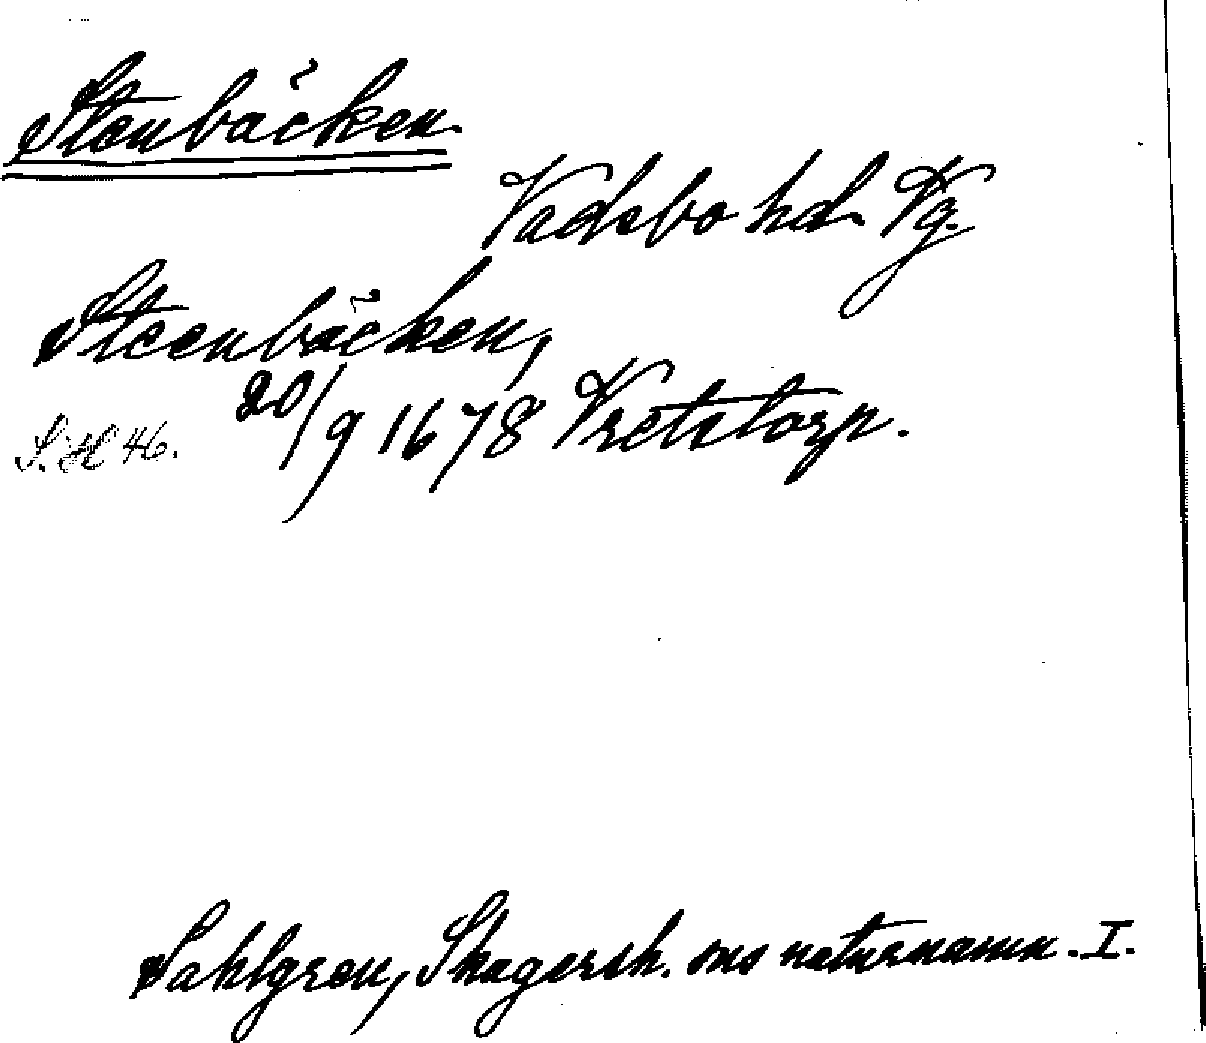 Stenbäcken
Vadsbo hd. Vg.
Steenbäcken,
20/9 1678 Vretstorp.
S. H 46.
Sahlgren, Skagersh. sns naturnamn. I.